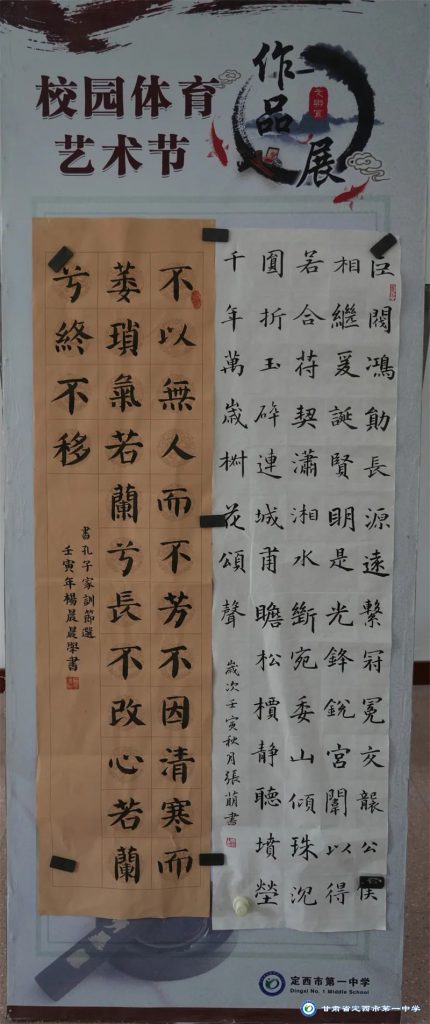 校园体育
艺术节
作品展
巨閥鴻勛長源遠繫冠冕交襲公侯
相繼爰誕賢明是光鋒銳宮闈以得
若合苻契瀟湘水斷宛委山傾珠沉
圓折玉碎連城甫瞻松檟靜聽墳塋
千年萬歲椒花頌聲
歲次壬寅秋月張萌書
不以無人而不芳不因清寒而
萎瑣氣若蘭兮長不改心若蘭
兮終不移
書孔子家訓節選
壬寅年楊晨晨學書
定西市第一中学
Dingxi No. 1 Middle School
甘肃省定西市第一中学